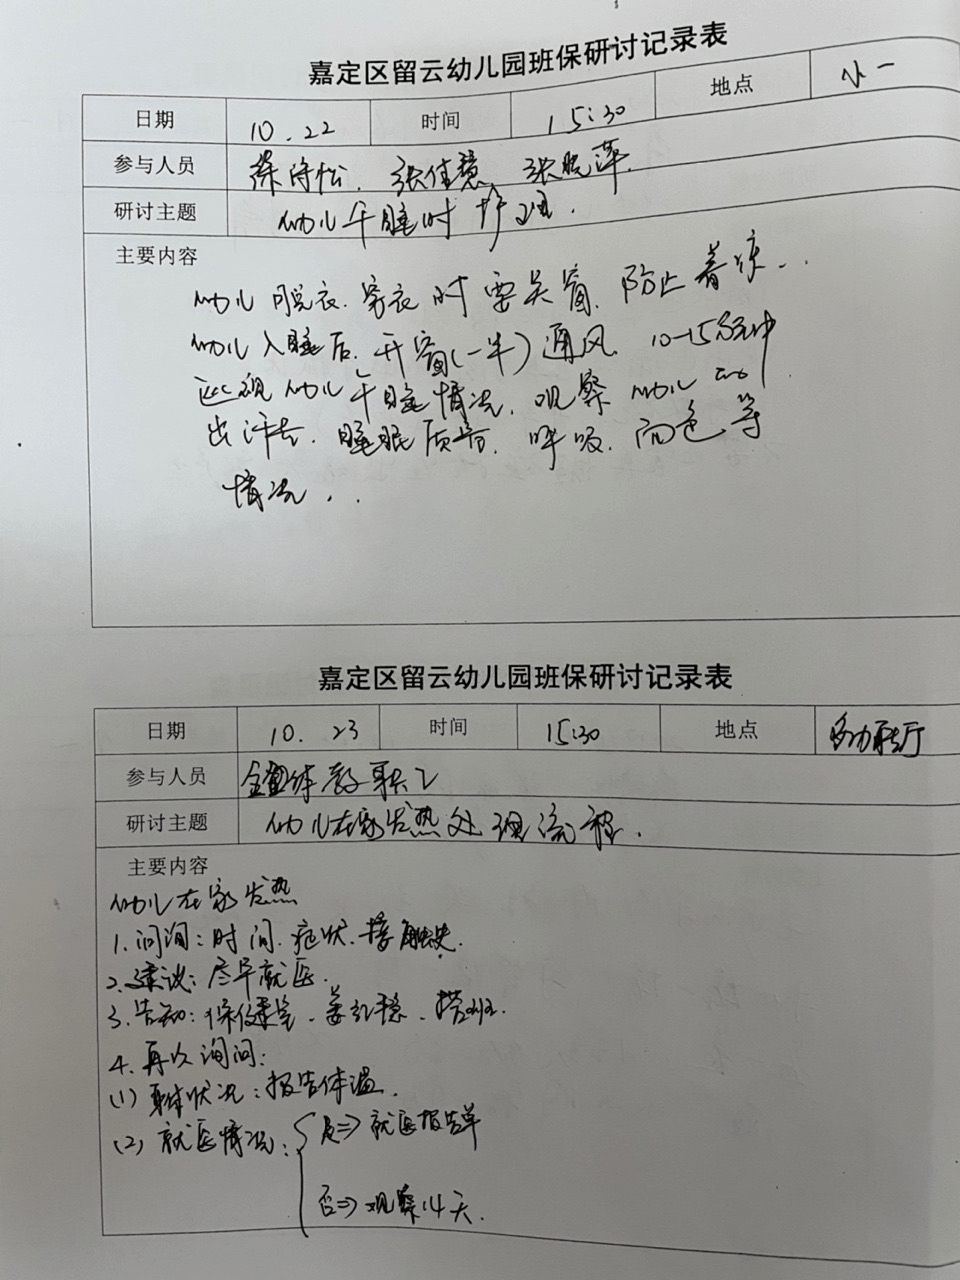 嘉定区留云幼儿园班保研讨记录表
日期 10.22 时间 15:30 地点 小一
参与人员 张佳慧、张晓萍.
研讨主题 幼儿午睡时护理.
主要内容
幼儿脱衣、穿衣时要关窗、防止着凉..
幼儿入睡后、开窗(一半)通风、10-15分钟
巡视幼儿午睡情况、观察幼儿的
出汗、睡眠质量、呼吸、面色等
情况..
嘉定区留云幼儿园班保研讨记录表
日期 10.23 时间 15:30 地点 多功能厅
参与人员 全体教职工
研讨主题 幼儿在家发热处理流程.
主要内容
幼儿在家发热
1.问询:时间、症状、接触史.
2.建议:尽早就医.
3.告知:保健室、搭班.
4.再次询问:
(1)身体状况:报告体温.
(2)就医情况: 是⇒就医报告单
否⇒观察14天.